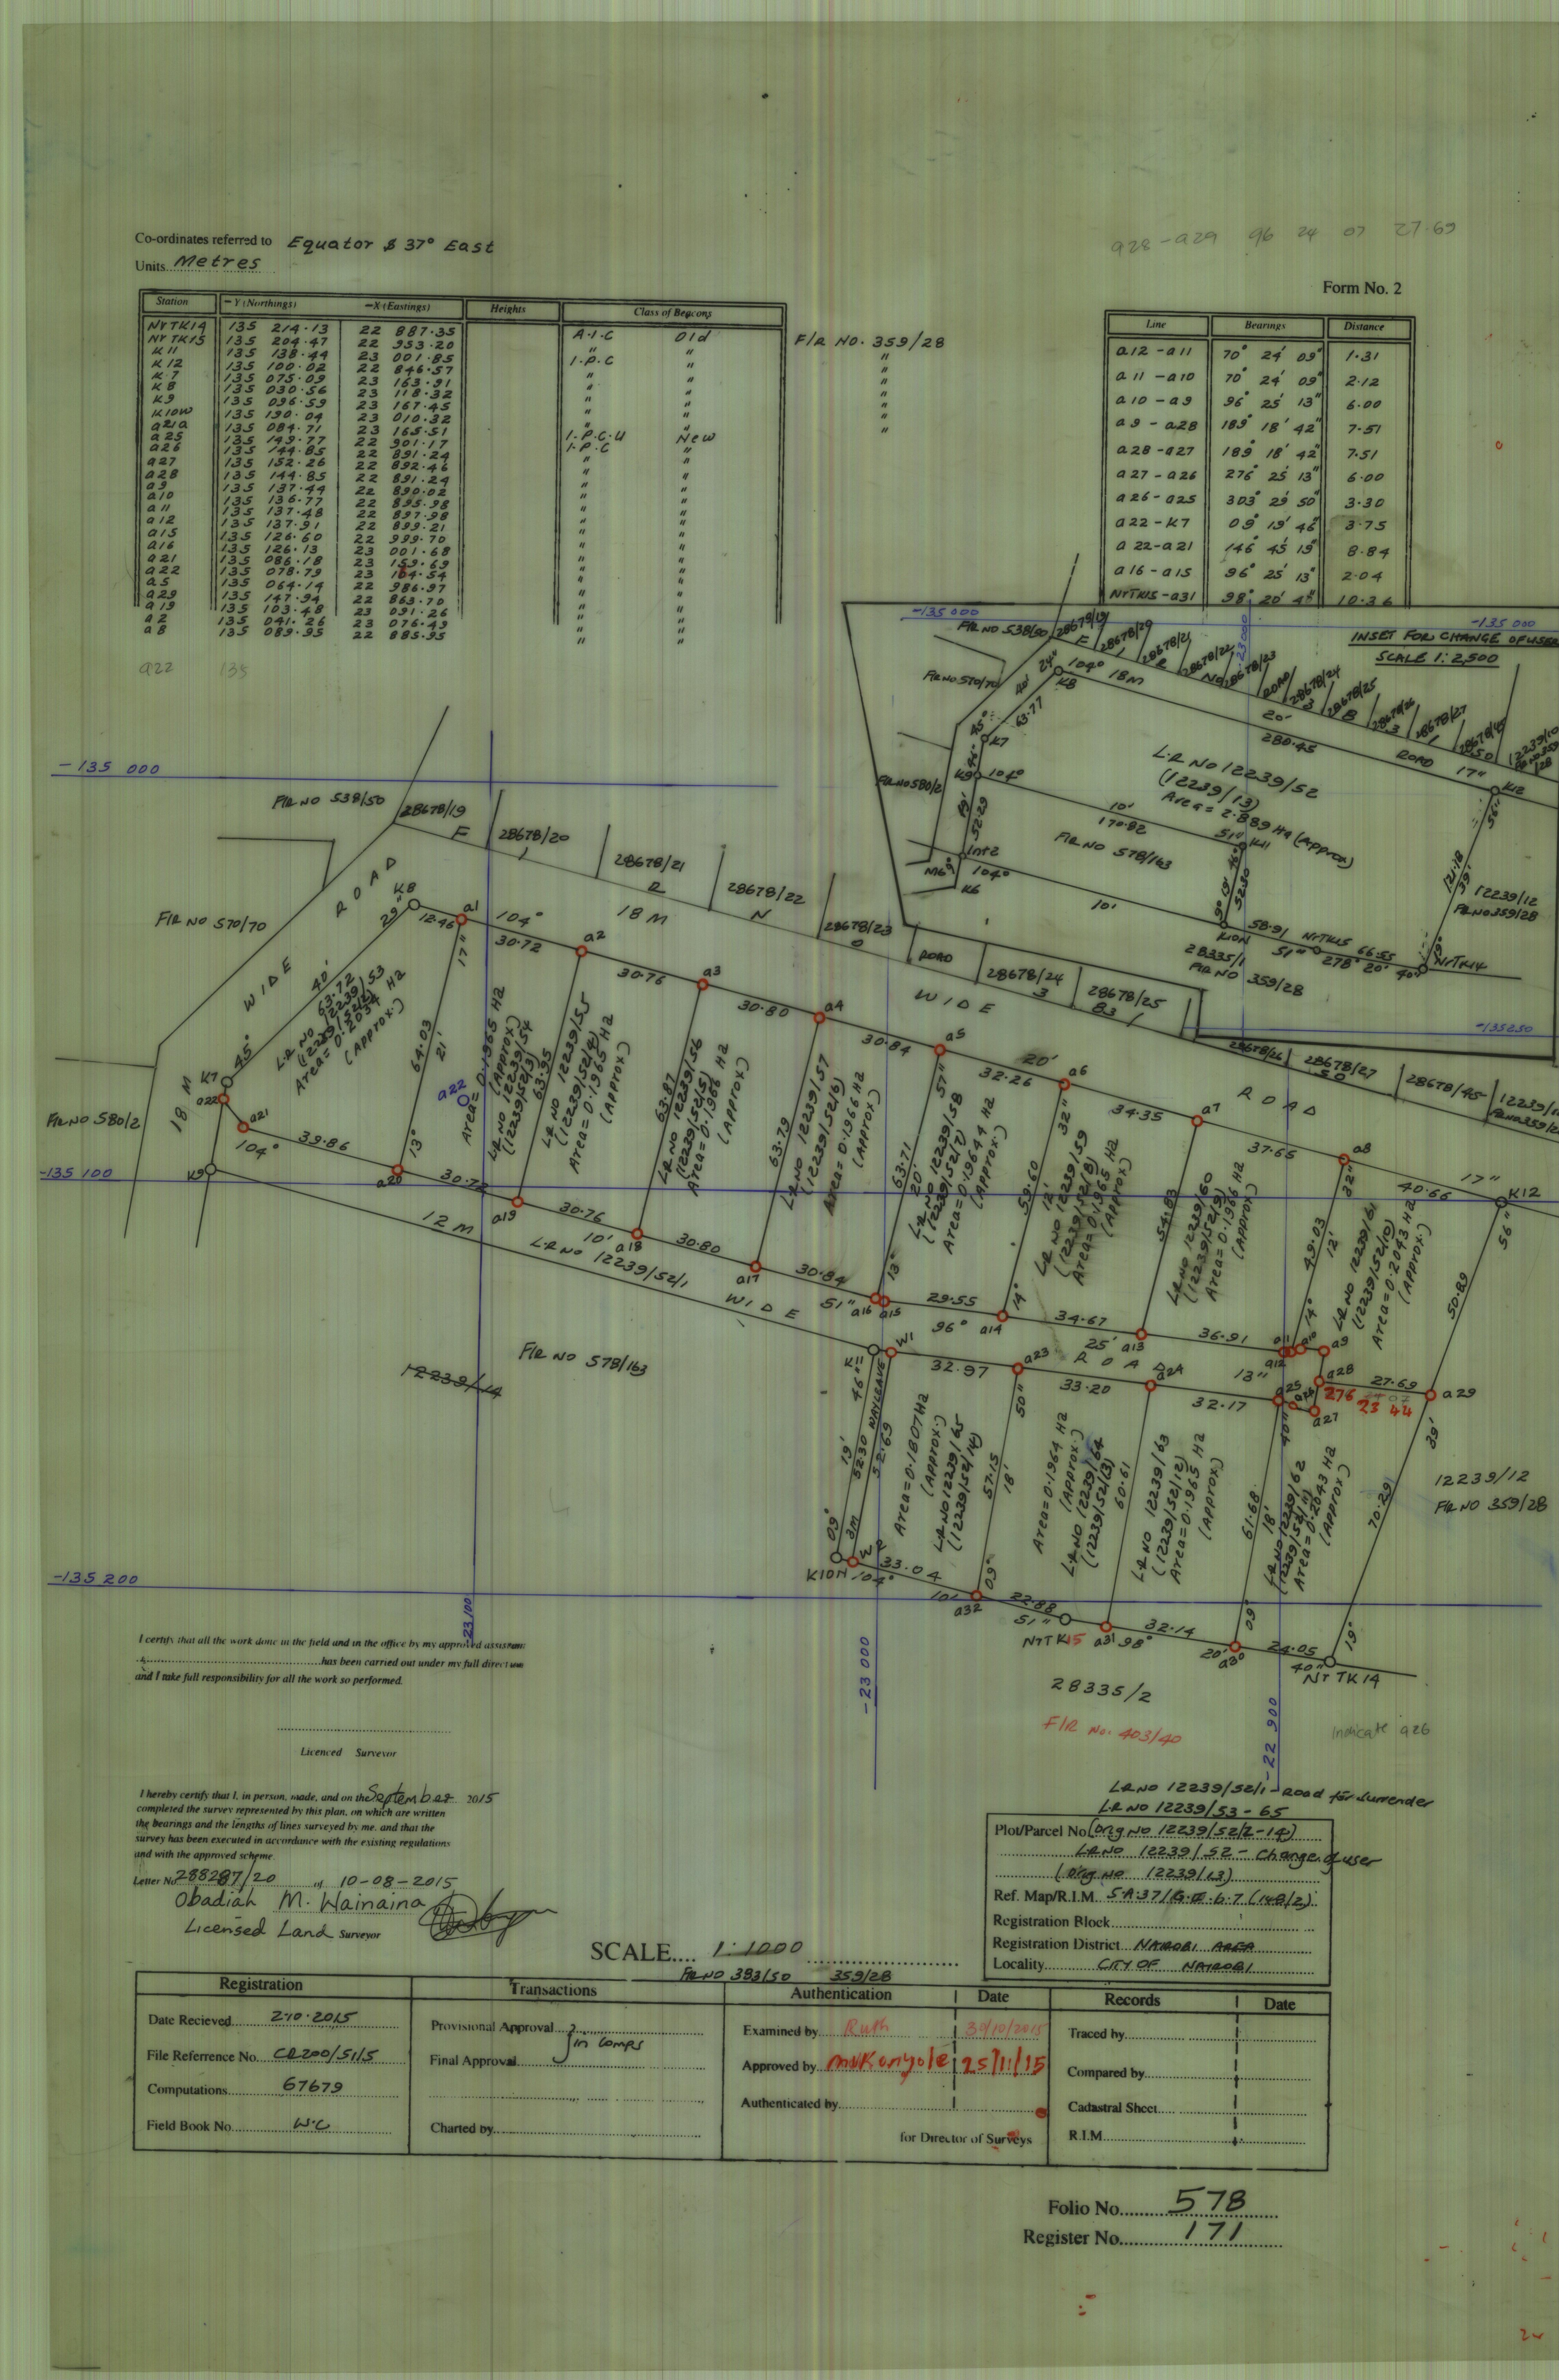 Co-ordinates referred to Equator & 37° East
Units Metres
a28-a29 96 24 07 27.69
Form No. 2
Station -Y (Northings) -X (Eastings) Heights Class of Beacons
NYTK14 135 214.13 22 887.35 A.I.C Old F/R NO. 359/28
NYTK15 135 204.47 22 953.20 " " "
K11 135 138.44 23 001.85 I.P.C " "
K12 135 100.02 22 846.57 " " "
K7 135 075.09 23 163.91 " " "
K8 135 030.56 23 118.32 " " "
K9 135 096.59 23 167.45 " " "
K10N 135 190.04 23 010.32 " " "
a21a 135 084.71 23 165.51 I.P.C.U New
a25 135 149.77 22 901.17 I.P.C "
a26 135 144.85 22 891.24 " "
a27 135 152.26 22 892.46 " "
a28 135 144.85 22 891.24 " "
a9 135 137.44 22 890.02 " "
a10 135 136.77 22 895.98 " "
a11 135 137.48 22 897.98 " "
a12 135 137.91 22 899.21 " "
a15 135 126.60 22 999.70 " "
a16 135 126.13 23 001.68 " "
a21 135 086.18 23 159.69 " "
a22 135 078.79 23 164.54 " "
a5 135 064.14 22 986.97 " "
a29 135 147.94 22 863.70 " "
a19 135 103.48 23 091.26 " "
a2 135 041.26 23 076.49 " "
a8 135 089.95 22 885.95 " "
a22 135
Line Bearings Distance
a12-a11 70° 24' 09" 1.31
a11-a10 70° 24' 09" 2.12
a10-a9 96° 25' 13" 6.00
a9-a28 189° 18' 42" 7.51
a28-a27 189° 18' 42" 7.51
a27-a26 276° 25' 13" 6.00
a26-a25 303° 29' 50" 3.30
a22-K7 09° 19' 46" 3.75
a22-a21 146° 45' 19" 8.84
a16-a15 96° 25' 13" 2.04
NYTK15-a31 98° 20' 4" 10.36
-135 000
-135 000
INSET FOR CHANGE OF USER
SCALE 1:2,500
23000
F/R NO 538/50
28678/19
28678/20
28678/21
28678/22
28678/23
ROAD
28678/24
28678/25
28678/27
F/R NO 570/70
K8 104° 18M
20'
280.45
ROAD 17" K12
63.77
K7
K9 104°
F/R NO 580/2
L.R NO 12239/52
(12239/13)
Area = 2.889 Ha (Approx)
10'
170.82
51" K11
F/R NO 578/163
52.29
Int2
104°
M6
K6
10'
52.30
K10N
58.91 NYTK15 66.55
51" 278° 20' 40" NYTK14
121.18
39'
56"
12239/12
F/R NO 359/28
28335/1
F/R NO 359/28
-135250
-135 000
F/R NO 538/50
28678/19
F I R N O
28678/20
28678/21
28678/22
28678/23
ROAD
28678/24
28678/25
28678/27
28678/45
18 M WIDE ROAD
F/R NO 570/70
WIDE ROAD
K8 12.46 a1 104° 30.72 a2 30.76 a3 30.80 a4 30.84 a5 20' 32.26 a6 34.35 a7 37.65 a8 40.66 17" K12
29"
40'
63.72
45°
L.R NO 12239/53
(12239/52/2)
Area = 0.2034 Ha
(Approx.)
17"
64.03
21'
13°
a22
Area = 0.1965 Ha
(Approx)
L.R NO 12239/54
(12239/52/3)
63.95
L.R NO 12239/55
(12239/52/4)
Area = 0.1965 Ha
(Approx)
63.87
L.R NO 12239/56
(12239/52/5)
Area = 0.1966 Ha
(Approx)
63.79
L.R NO 12239/57
(12239/52/6)
Area = 0.1966 Ha
(Approx)
57"
63.71
20'
13°
L.R NO 12239/58
(12239/52/7)
Area = 0.19644 Ha
(Approx)
32"
59.60
12'
14°
L.R NO 12239/59
(12239/52/8)
Area = 0.1965 Ha
(Approx)
54.83
L.R NO 12239/60
(12239/52/9)
Area = 0.1966 Ha
(Approx)
32"
49.03
12'
14°
L.R NO 12239/61
(12239/52/10)
Area = 0.2043 Ha
(Approx)
56"
50.89
K7
a22
a21
18 M
F/R NO 580/2
104° 39.86 a20 30.72 a19 30.76 10' a18 30.80 a17 30.84 51" a16 a15 29.55 96° a14 34.67 25' a13 36.91 13" a12 a11 a10 a9
-135 100
K9
12 M WIDE ROAD
L.R NO 12239/52/1
12239/14
F/R NO 578/163
K11 W1 32.97 a23 33.20 a24 32.17 a25 a26 a27 a28 27.69 a29
276 23 44
46"
19'
52.30
09°
WAYLEAVE
52.69
3M
Area = 0.1807 Ha
(Approx)
L.R NO 12239/65
(12239/52/14)
50"
57.15
18'
09°
Area = 0.1964 Ha
(Approx)
L.R NO 12239/64
(12239/52/13)
60.61
L.R NO 12239/63
(12239/52/12)
Area = 0.1965 Ha
(Approx)
40"
61.68
18'
09°
L.R NO 12239/62
(12239/52/11)
Area = 0.2043 Ha
(Approx)
39'
70.29
19°
12239/12
F/R NO 359/28
K10N W2 104° 33.04 10' a32 22.88 51" NYTK15 a31 98° 32.14 20' a30 24.05 40" NYTK14
-135 200
23100
-23 000
-22 900
28335/2
F/R No. 403/40
Indicate a26
I certify that all the work done in the field and in the office by my approved assistant
has been carried out under my full direction
and I take full responsibility for all the work so performed.
Licenced Surveyor
I hereby certify that I, in person, made, and on the September 2015
completed the survey represented by this plan, on which are written
the bearings and the lengths of lines surveyed by me, and that the
survey has been executed in accordance with the existing regulations
and with the approved scheme.
Letter No 288287/20 of 10-08-2015
Obadiah M. Wainaina
Licensed Land Surveyor
L.R NO 12239/52/1 - Road for Surrender
L.R NO 12239/53 - 65
Plot/Parcel No (Orig No 12239/52/2-14)
L.R NO 12239/52 - Change of user
(Orig No 12239/13)
Ref. Map/R.I.M. S.A.37/G.E.6.7 (148/2)
Registration Block
Registration District NAIROBI AREA
Locality CITY OF NAIROBI
SCALE 1:1000
F/R NO 383/50 359/28
Registration Transactions Authentication Date Records Date
Date Recieved 2.10.2015
File Referrence No. CR200/51/5
Computations 67679
Field Book No. W.C
Provisional Approval
in comps
Final Approval
Charted by
Examined by Ruth 30/10/2015
Approved by Mukonyole 25/11/15
Authenticated by
for Director of Surveys
Traced by
Compared by
Cadastral Sheet
R.I.M
Folio No. 578
Register No. 171